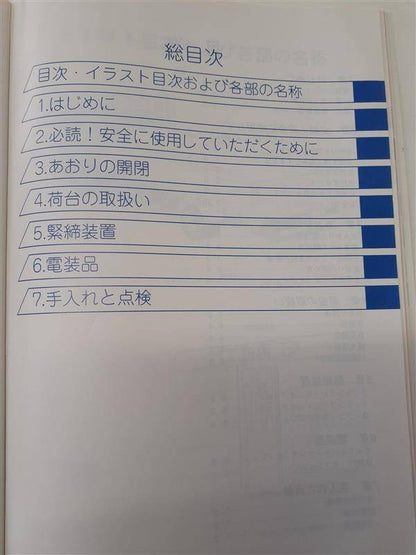 総目次
目次・イラスト目次および各部の名称
1.はじめに
2.必読！安全に使用していただくために
3.あおりの開閉
4.荷台の取扱い
5.緊締装置
6.電装品
7.手入れと点検